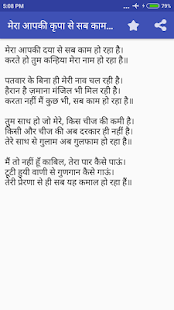 5:08 PM
79%
मेरा आपकी कृपा से सब काम...
मेरा आपकी दया से सब काम हो रहा है।
करते हो तुम कन्हिया मेरा नाम हो रहा है॥
पतवार के बिना ही मेरी नाव चल रही है।
हैरान है ज़माना मंजिल भी मिल रही है।
करता नहीं मैं कुछ भी, सब काम हो रहा है॥
तुम साथ हो जो मेरे, किस चीज की कमी है।
किसी और चीज की अब दरकार ही नहीं है।
तेरे साथ से गुलाम अब गुलफाम हो रहा है॥
मैं तो नहीं हूँ काबिल, तेरा पार कैसे पाऊं।
टूटी हुयी वाणी से गुणगान कैसे गाऊं।
तेरी प्रेरणा से ही सब यह कमाल हो रहा हैं॥